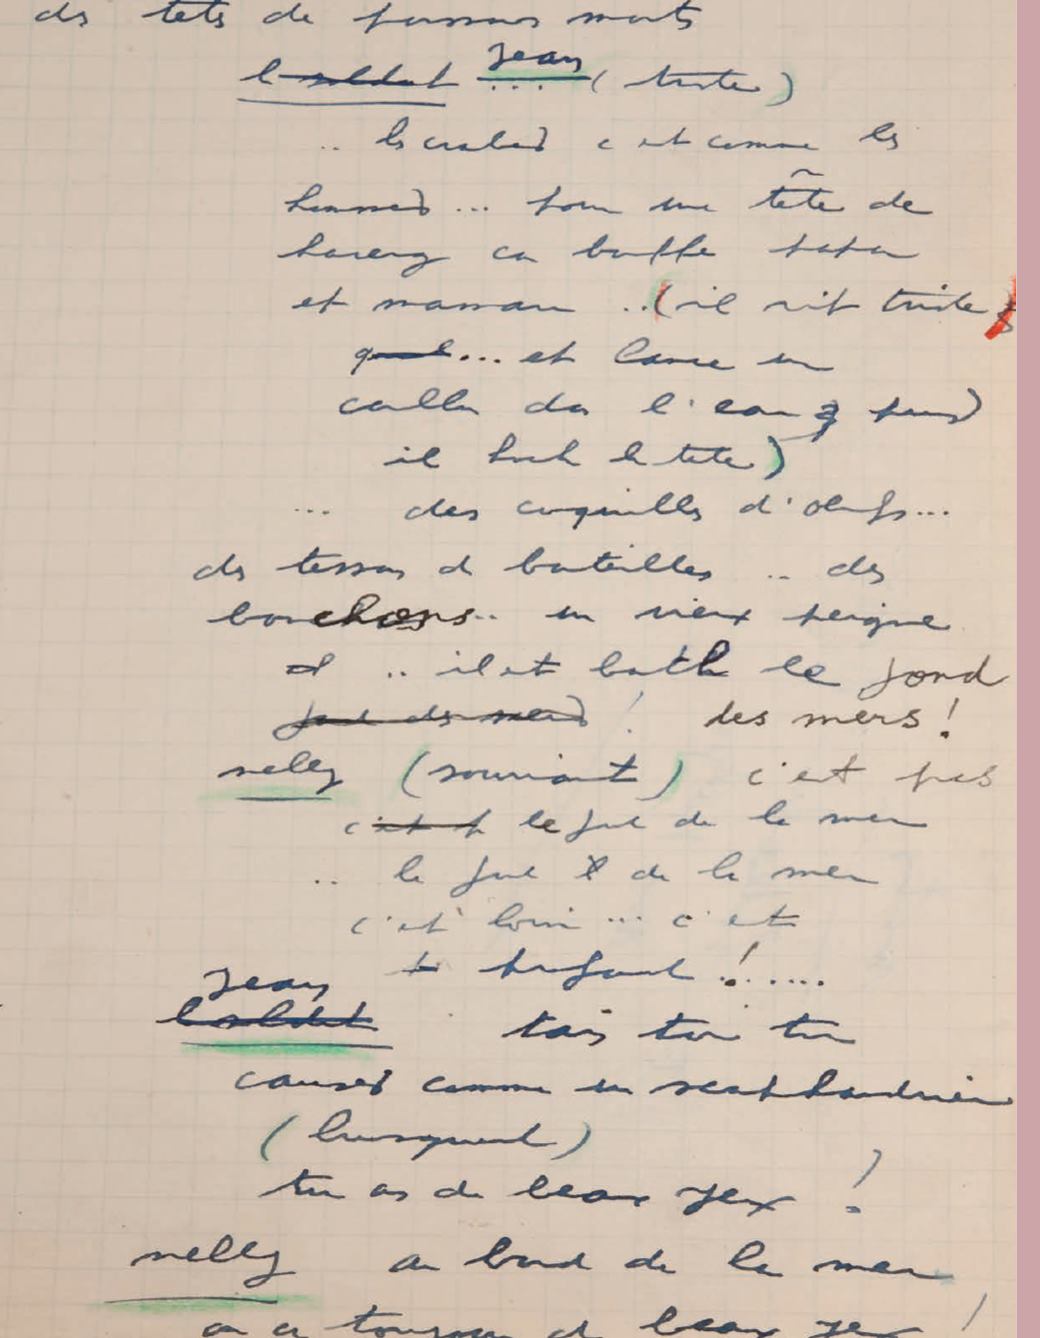 des tetes de poissons morts
le soldat Jean ... (triste)
.. les crabes c est comme les
hommes ... pour une tête de
hareng ca bouffe papa
et maman .. (il rit triste
... et lance un
caillou ds l'eau puis
il hoche la tete)
... des coquilles d'oeufs...
des tessons de bouteilles .. des
bouchons .. un vieux peigne
.. il est bath le fond
fond des mers ! des mers !
nelly (souriant) c'est pas
c'est p le fond de la mer
.. le fond de la mer
c'est loin ... c'est
profond ! .....
Jean
le soldat tais toi tu
causes comme un scaphandrier
(brusquement)
tu as de beaux yeux !
nelly au bord de la mer
on a toujours de beaux yeux !